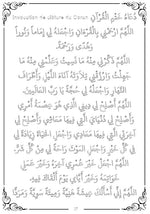 دُعَاءُ خَتْمِ الْقُرْآنِ
اَللَّهُمَّ ارْحَمْنِي بِالْقُرْءَانِ وَاجْعَلْهُ لِي إِمَامًا وَنُورًا
وَهُدًى وَرَحْمَةً.
اَللَّهُمَّ ذَكِّرْنِي مِنْهُ مَا نَسِيتُ وَعَلِّمْنِي مِنْهُ مَا
جَهِلْتُ وَارْزُقْنِي تِلَاوَتَهُ آنَاءَ اللَّيْلِ وَأَطْرَافَ
النَّهَارِ وَاجْعَلْهُ لِي حُجَّةً يَا رَبَّ الْعَالَمِينَ.
اَللَّهُمَّ أَصْلِحْ لِي دِينِي الَّذِي هُوَ عِصْمَةُ أَمْرِي
وَأَصْلِحْ لِي دُنْيَايَ الَّتِي فِيهَا مَعَاشِي وَأَصْلِحْ لِي
آخِرَتِي الَّتِي فِيهَا مَعَادِي وَاجْعَلِ الْحَيَاةَ زِيَادَةً لِي
فِي كُلِّ خَيْرٍ وَاجْعَلِ الْمَوْتَ رَاحَةً لِي مِنْ كُلِّ شَرٍّ.
اَللَّهُمَّ اجْعَلْ خَيْرَ عُمْرِي آخِرَهُ وَخَيْرَ عَمَلِي
خَوَاتِمَهُ وَخَيْرَ أَيَّامِي يَوْمَ أَلْقَاكَ فِيهِ.
اَللَّهُمَّ إِنِّي أَسْأَلُكَ عِيشَةً هَنِيَّةً وَمِيتَةً سَوِيَّةً وَمَرَدًّا